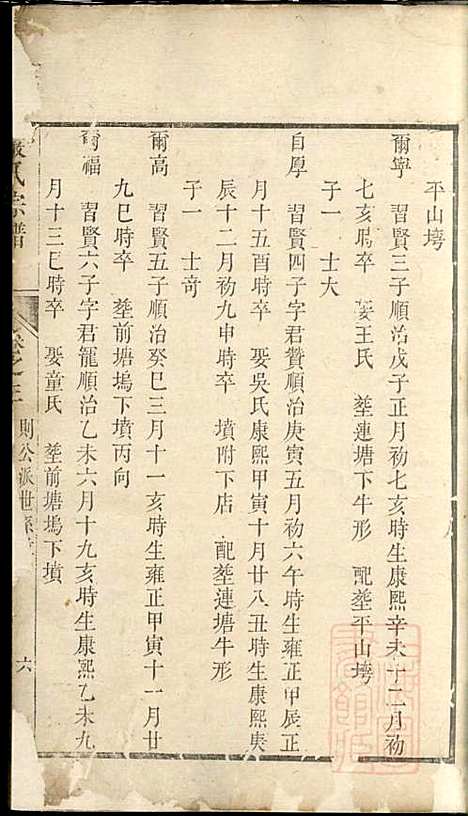 平山塆
爾寧 習賢三子順治戊子正月初七亥時生康熙辛未十二月初
七亥時卒 娶王氏 塟連塘下牛形 配塟平山塆
子一 士大
自厚 習賢四子字君贊順治庚寅五月初六午時生雍正甲辰正
月十五酉時卒 娶吳氏康熙甲寅十月廿八丑時生康熙庚
辰十二月初九申時卒 墳附下店 配塟連塘牛形
子一 士奇
爾高 習賢五子順治癸巳三月十一亥時生雍正甲寅十一月廿
九巳時卒 塟前塘塢下墳丙向
爾福 習賢六子字君龍順治乙未六月十九亥時生康熙乙未九
月十三巳時卒 娶童氏 塟前塘塢下墳
氏宗譜 卷之三 則公派世系 六